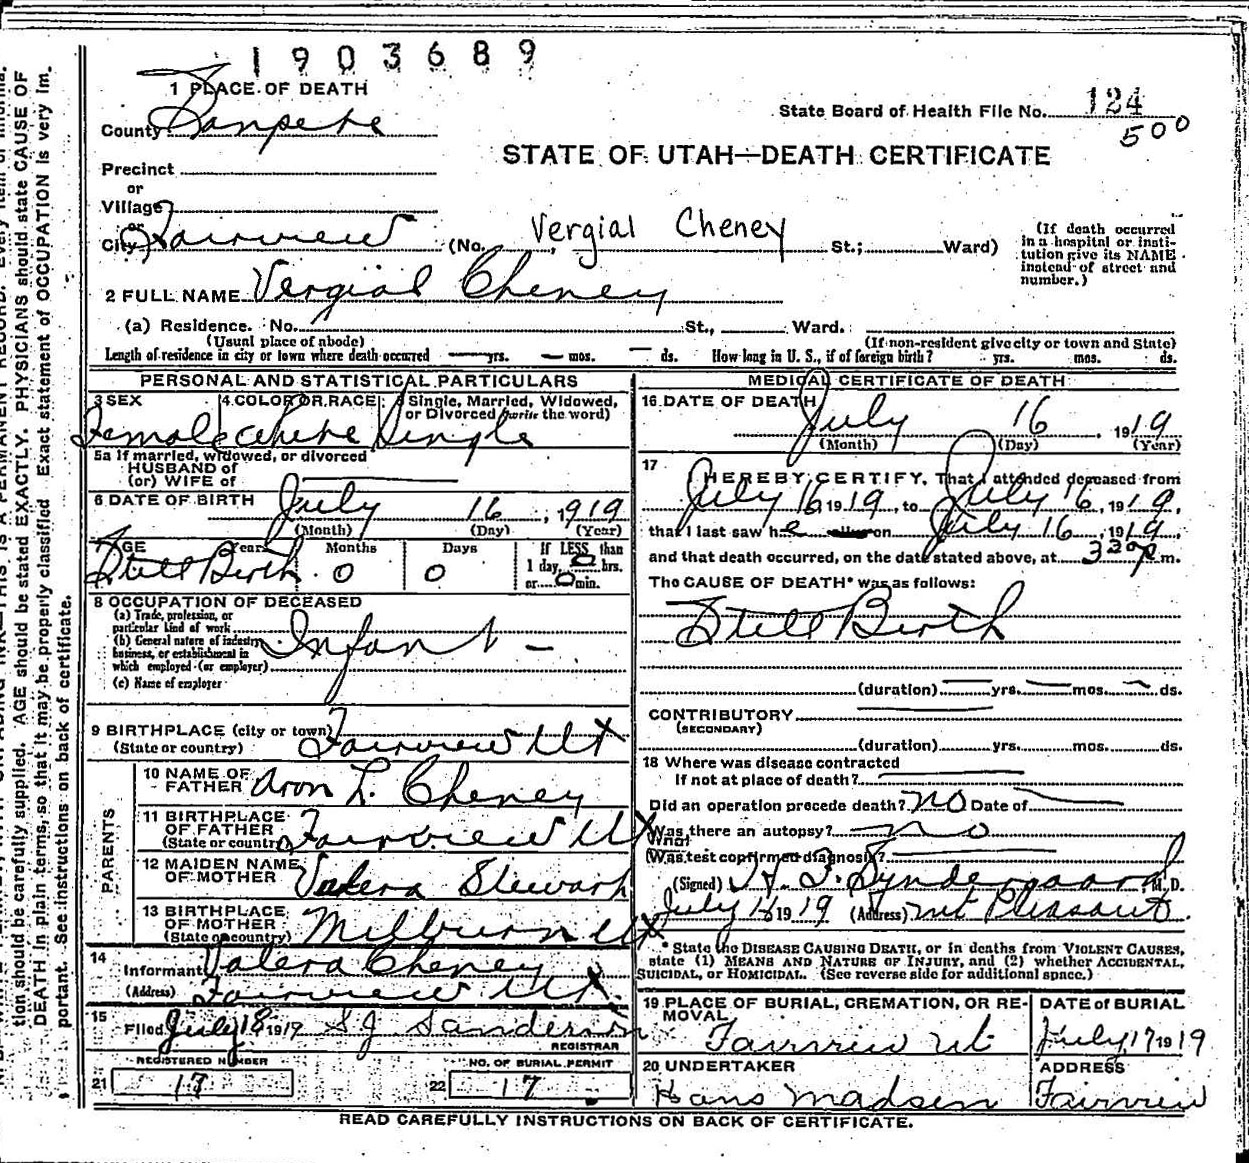 1903689
1 PLACE OF DEATH
County Sanpete
State Board of Health File No. 124
500
STATE OF UTAH—DEATH CERTIFICATE
Precinct
or
Village
or
City Fairview (No. Vergial Cheney St.; Ward)
(If death occurred
in a hospital or insti-
tution give its NAME
instead of street and
number.)
2 FULL NAME Vergial Cheney
(a) Residence. No. St., Ward.
(Usual place of abode) (If non-resident give city or town and State)
Length of residence in city or town where death occurred — yrs. — mos. — ds. How long in U. S., if of foreign birth? yrs. mos. ds.
PERSONAL AND STATISTICAL PARTICULARS
3 SEX 4 COLOR OR RACE 5 Single, Married, Widowed,
or Divorced (write the word)
Female White Single
5a If married, widowed, or divorced
HUSBAND of
(or) WIFE of
6 DATE OF BIRTH July 16, 1919
(Month) (Day) (Year)
7 AGE Years Months Days If LESS than
1 day, 0 hrs.
or 0 min.
Still Birth 0 0
8 OCCUPATION OF DECEASED
(a) Trade, profession, or
particular kind of work
(b) General nature of industry,
business, or establishment in
which employed (or employer)
Infant —
(c) Name of employer
9 BIRTHPLACE (city or town) Fairview Ut
(State or country)
PARENTS
10 NAME OF
FATHER Aron L. Cheney
11 BIRTHPLACE
OF FATHER Fairview Ut
(State or country)
12 MAIDEN NAME
OF MOTHER Valera Stewart
13 BIRTHPLACE
OF MOTHER Milburn Ut
(State or country)
14
Informant Valera Cheney
(Address) Fairview Ut.
15
Filed July 18 1919 S J Sanderson
REGISTRAR
REGISTERED NUMBER NO. OF BURIAL PERMIT
21 17 22 17
MEDICAL CERTIFICATE OF DEATH
16 DATE OF DEATH July 16, 1919
(Month) (Day) (Year)
17
I HEREBY CERTIFY, That I attended deceased from
July 16, 1919, to July 16, 1919,
that I last saw he alive on July 16, 1919,
and that death occurred, on the date stated above, at 3 30 p m.
The CAUSE OF DEATH* was as follows:
Still Birth
(duration) yrs. mos. ds.
CONTRIBUTORY
(SECONDARY)
(duration) yrs. mos. ds.
18 Where was disease contracted
If not at place of death?
Did an operation precede death? No Date of
Was there an autopsy? No
What
(Was test confirmed diagnosis?
(Signed) Syndergaard M. D.
July 18 1919 (Address) Mt Pleasant
* State the DISEASE CAUSING DEATH, or in deaths from VIOLENT CAUSES,
state (1) MEANS AND NATURE OF INJURY, and (2) whether ACCIDENTAL,
SUICIDAL, or HOMICIDAL. (See reverse side for additional space.)
19 PLACE OF BURIAL, CREMATION, OR RE-
MOVAL DATE of BURIAL
Fairview Ut July 17 1919
20 UNDERTAKER ADDRESS
Hans Madsen Fairview
READ CAREFULLY INSTRUCTIONS ON BACK OF CERTIFICATE.
tion should be carefully supplied. AGE should be stated EXACTLY. PHYSICIANS should state CAUSE OF
DEATH in plain terms, so that it may be properly classified. Exact statement of OCCUPATION is very im-
portant. See instructions on back of certificate.